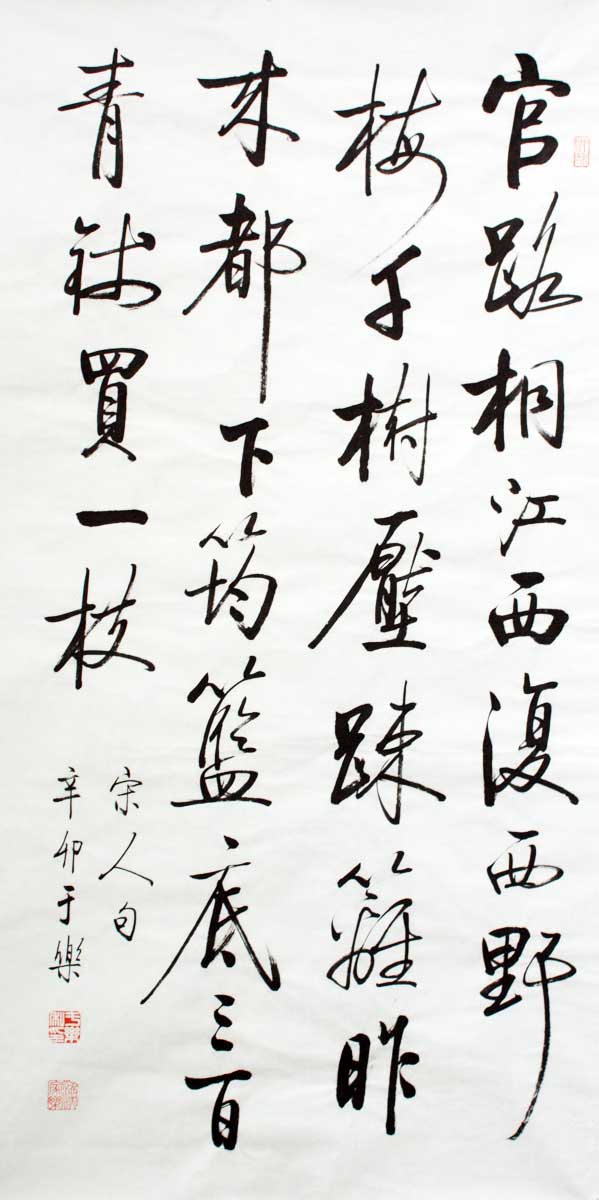 官路桐江西復西野
梅千樹壓踈籬昨
来都下筠籃底三百
青錢買一枝
宋人句
辛卯于樂